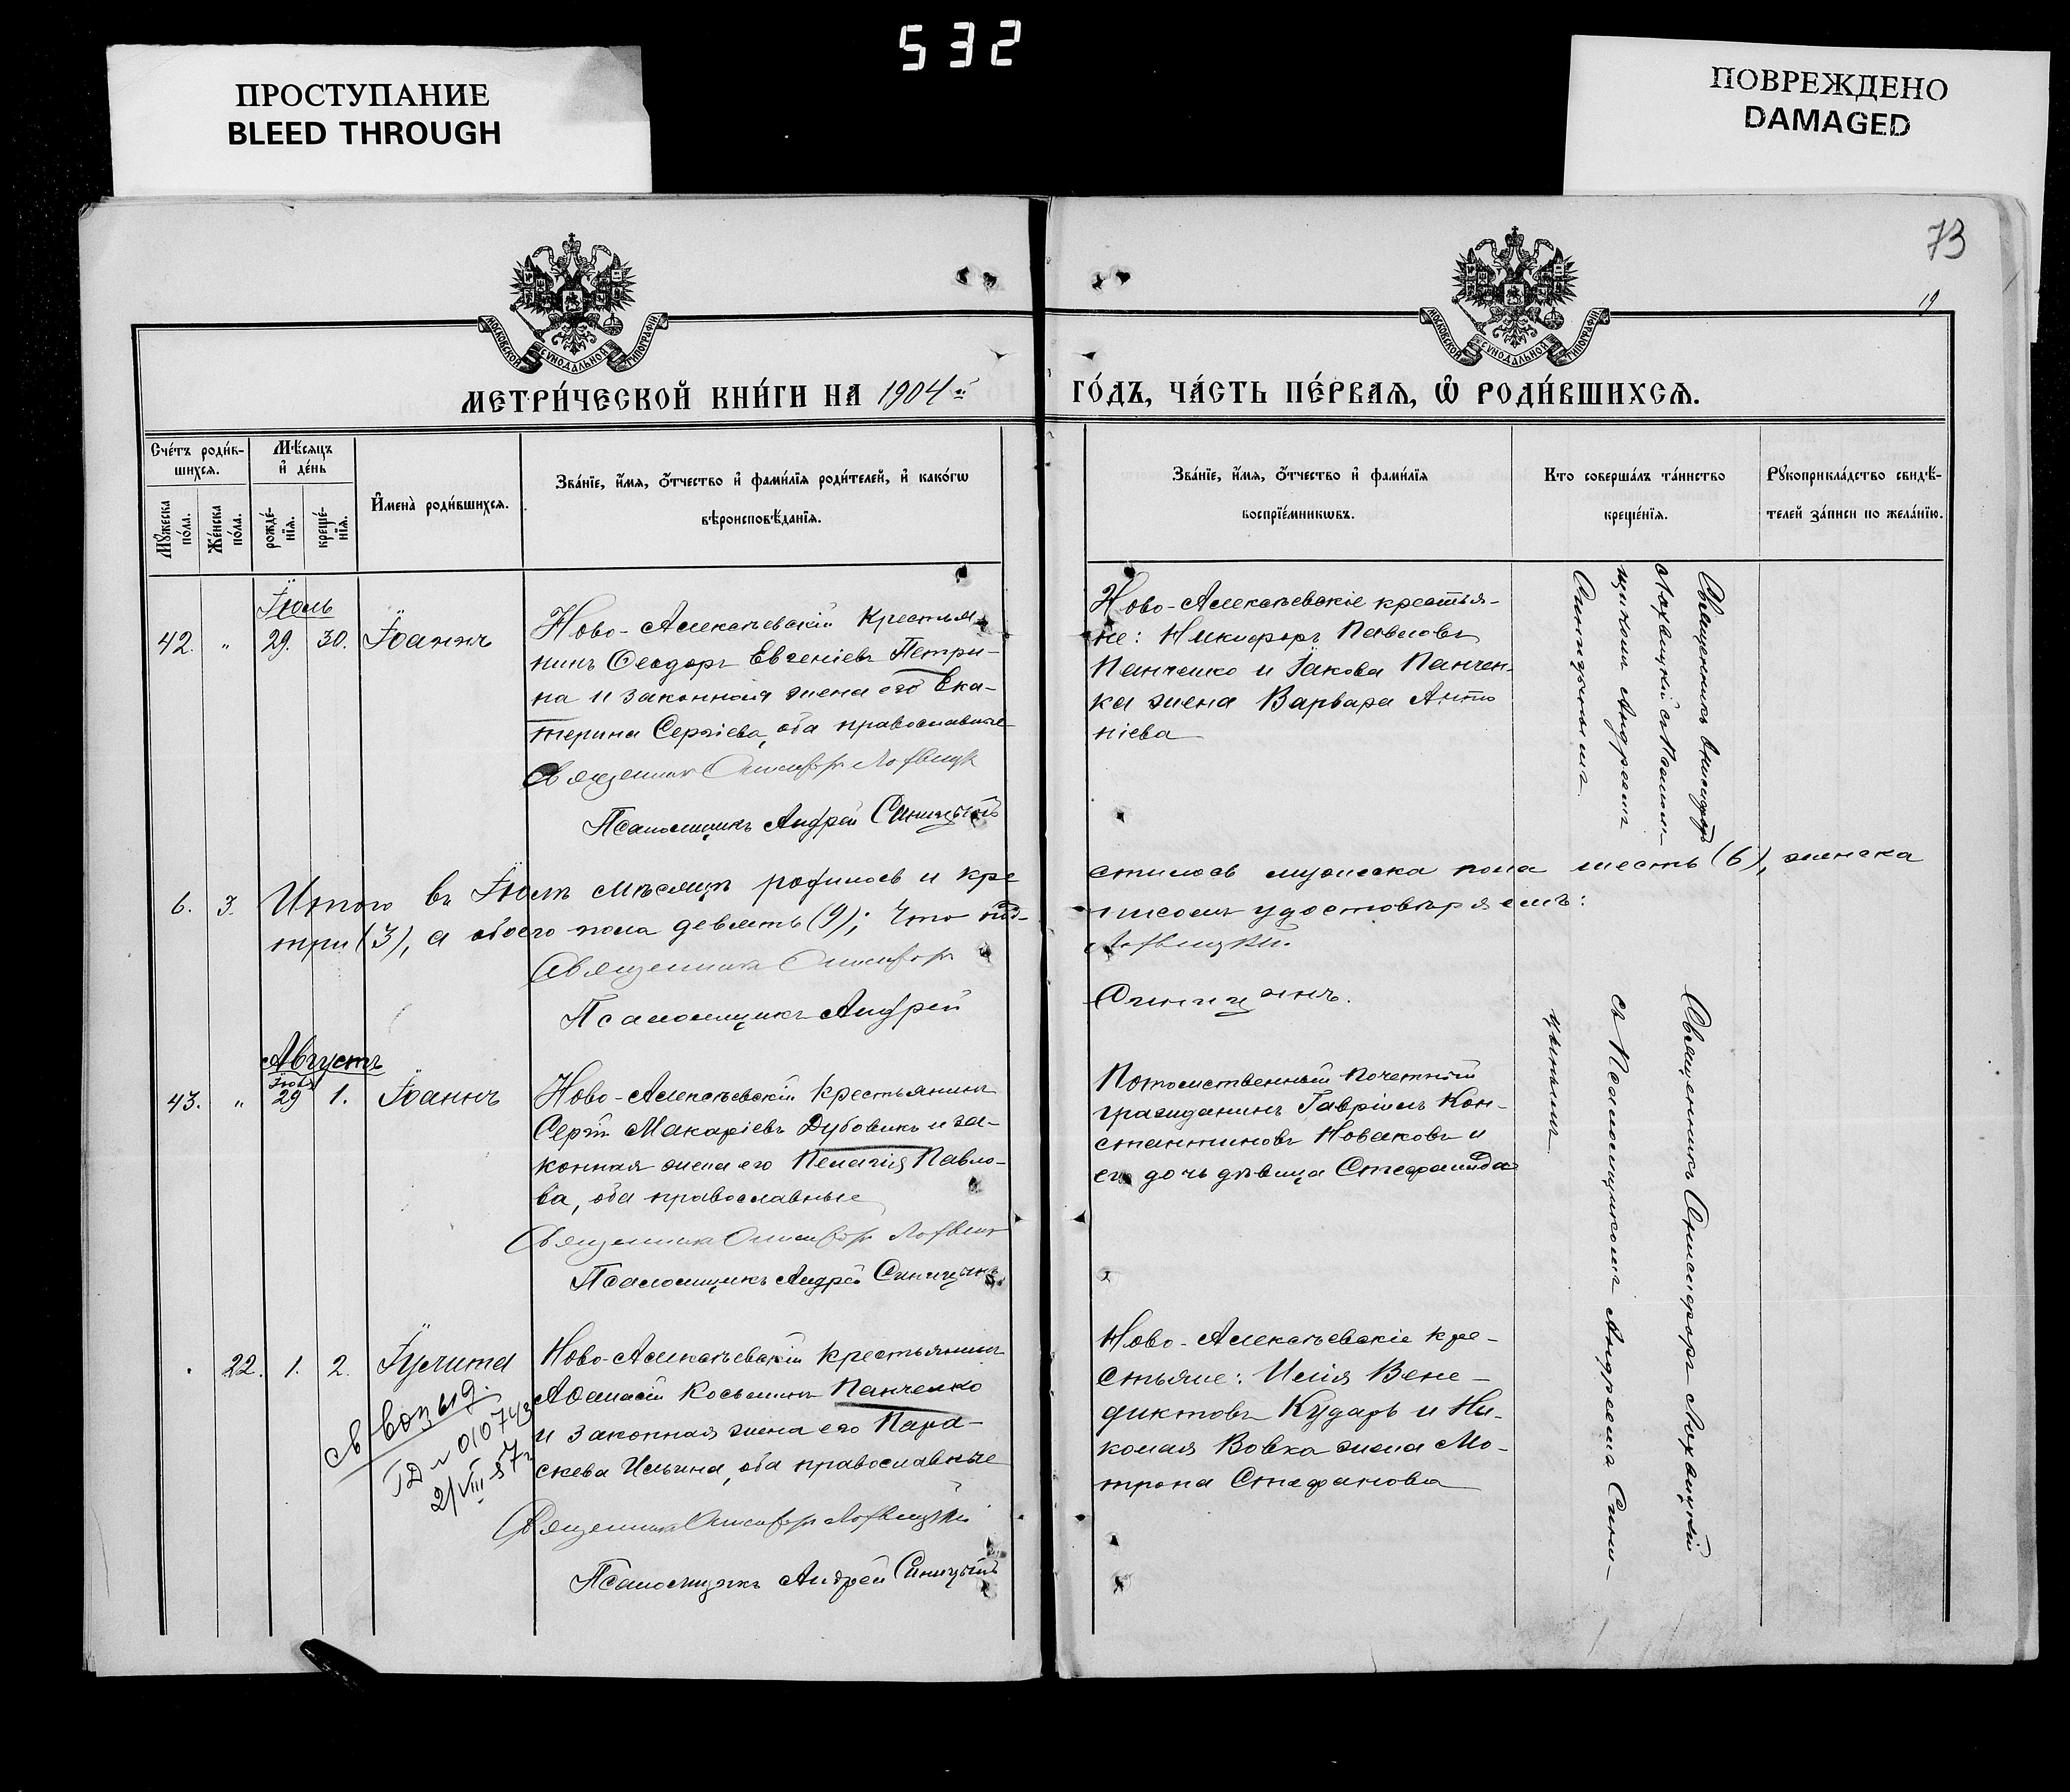 532
ПРОСТУПАНИЕ
BLEED THROUGH
ПОВРЕЖДЕНО
DAMAGED
73
19
МОСКОВСКОЙ СУНОДАЛЬНОЙ ТИПОГРАФІИ
МОСКОВСКОЙ СУНОДАЛЬНОЙ ТИПОГРАФІИ
МЕТРИ́ЧЕСКОЙ КНИ́ГИ НА 1904й
ГО́ДЪ, ЧА́СТЬ ПЕ́РВАѦ, Ѡ҆ РОДИ́ВШИХСѦ.
Сче́тъ роди́в-
шихсѧ.
Мѣ́сѧцъ
и҆ де́нь
Мꙋ́жеска
по́ла.
Же́нска
по́ла.
рожде́-
нїѧ.
креще́-
нїѧ.
И҆мена̀ роди́вшихсѧ.
Зва́нїе, и҆́мѧ, ѻ҆́тчество и҆ фами́лїѧ роди́телей, и҆ како́гѡ
вѣроисповѣ́данїѧ.
Зва́нїе, и҆́мѧ, ѻ҆́тчество и҆ фами́лїѧ
воспрїе́мникѡвъ.
Кто̀ соверша́лъ та́инство
креще́нїѧ.
Рꙋкоприкла́дство свидѣ́-
телей за́писи по жела́нїю.
Іюль
42. " 29. 30. Іоаннъ
Ново-Алексѣевскій Крестья-
нинъ Ѳеодоръ Евгеніевъ Петри-
на и законная жена его Ека-
терина Сергіева, оба православные
Священникъ Онисифоръ Лохвицк
Псаломщикъ Андрей Синицынъ
Ново-Алексѣевскіе крестья-
не: Никифоръ Павловъ
Панченко и Іакова Панчен-
ка жена Варвара Анто
ніева
Священникъ Онисифоръ
Лохвицкій съ Псалом-
щикомъ Андреемъ
Синицынымъ
6. 3. Итого въ Іюлѣ мѣсяцѣ родилось и кре
стилось мужеска пола шесть (6), женска
три (3), а обоего пола девять (9); Что под-
писомъ удостовѣряемъ:
Священникъ Онисифоръ
Лохвицкій.
Псаломщикъ Андрей
Синицынъ.
Августъ
Іюль
43. " 29 1. Іоаннъ
Ново-Алексѣевскій Крестьянинъ
Сергій Макаріевъ Дубовикъ и за-
конная жена его Пелагія Павло-
ва, оба православные
Священникъ Онисифоръ Лохвиц
Псаломщикъ Андрей Синицынъ
Потомственный почетный
гражданинъ Гавріилъ Кон-
стантиновъ Новаковъ и
его дочь дѣвица Стефанида
Священникъ Онисифоръ Лохвицкій
съ Псаломщикомъ Андреемъ Сини-
цынымъ
22. 1. 2. Іулита
Ново-Алексѣевскій крестьянинъ
Аѳанасій Косьминъ Панченко
и законная жена его Пара-
скева Ильина, оба православные
Священникъ Онисифоръ Лохвицкій
Псаломщикъ Андрей Синицынъ
Ново-Алексѣевскіе кре-
стьяне: Илія Вене-
диктовъ Кударь и Ни-
колая Вовка жена Мо-
трона Стефанова
св выд.
010743
2/VIII 57